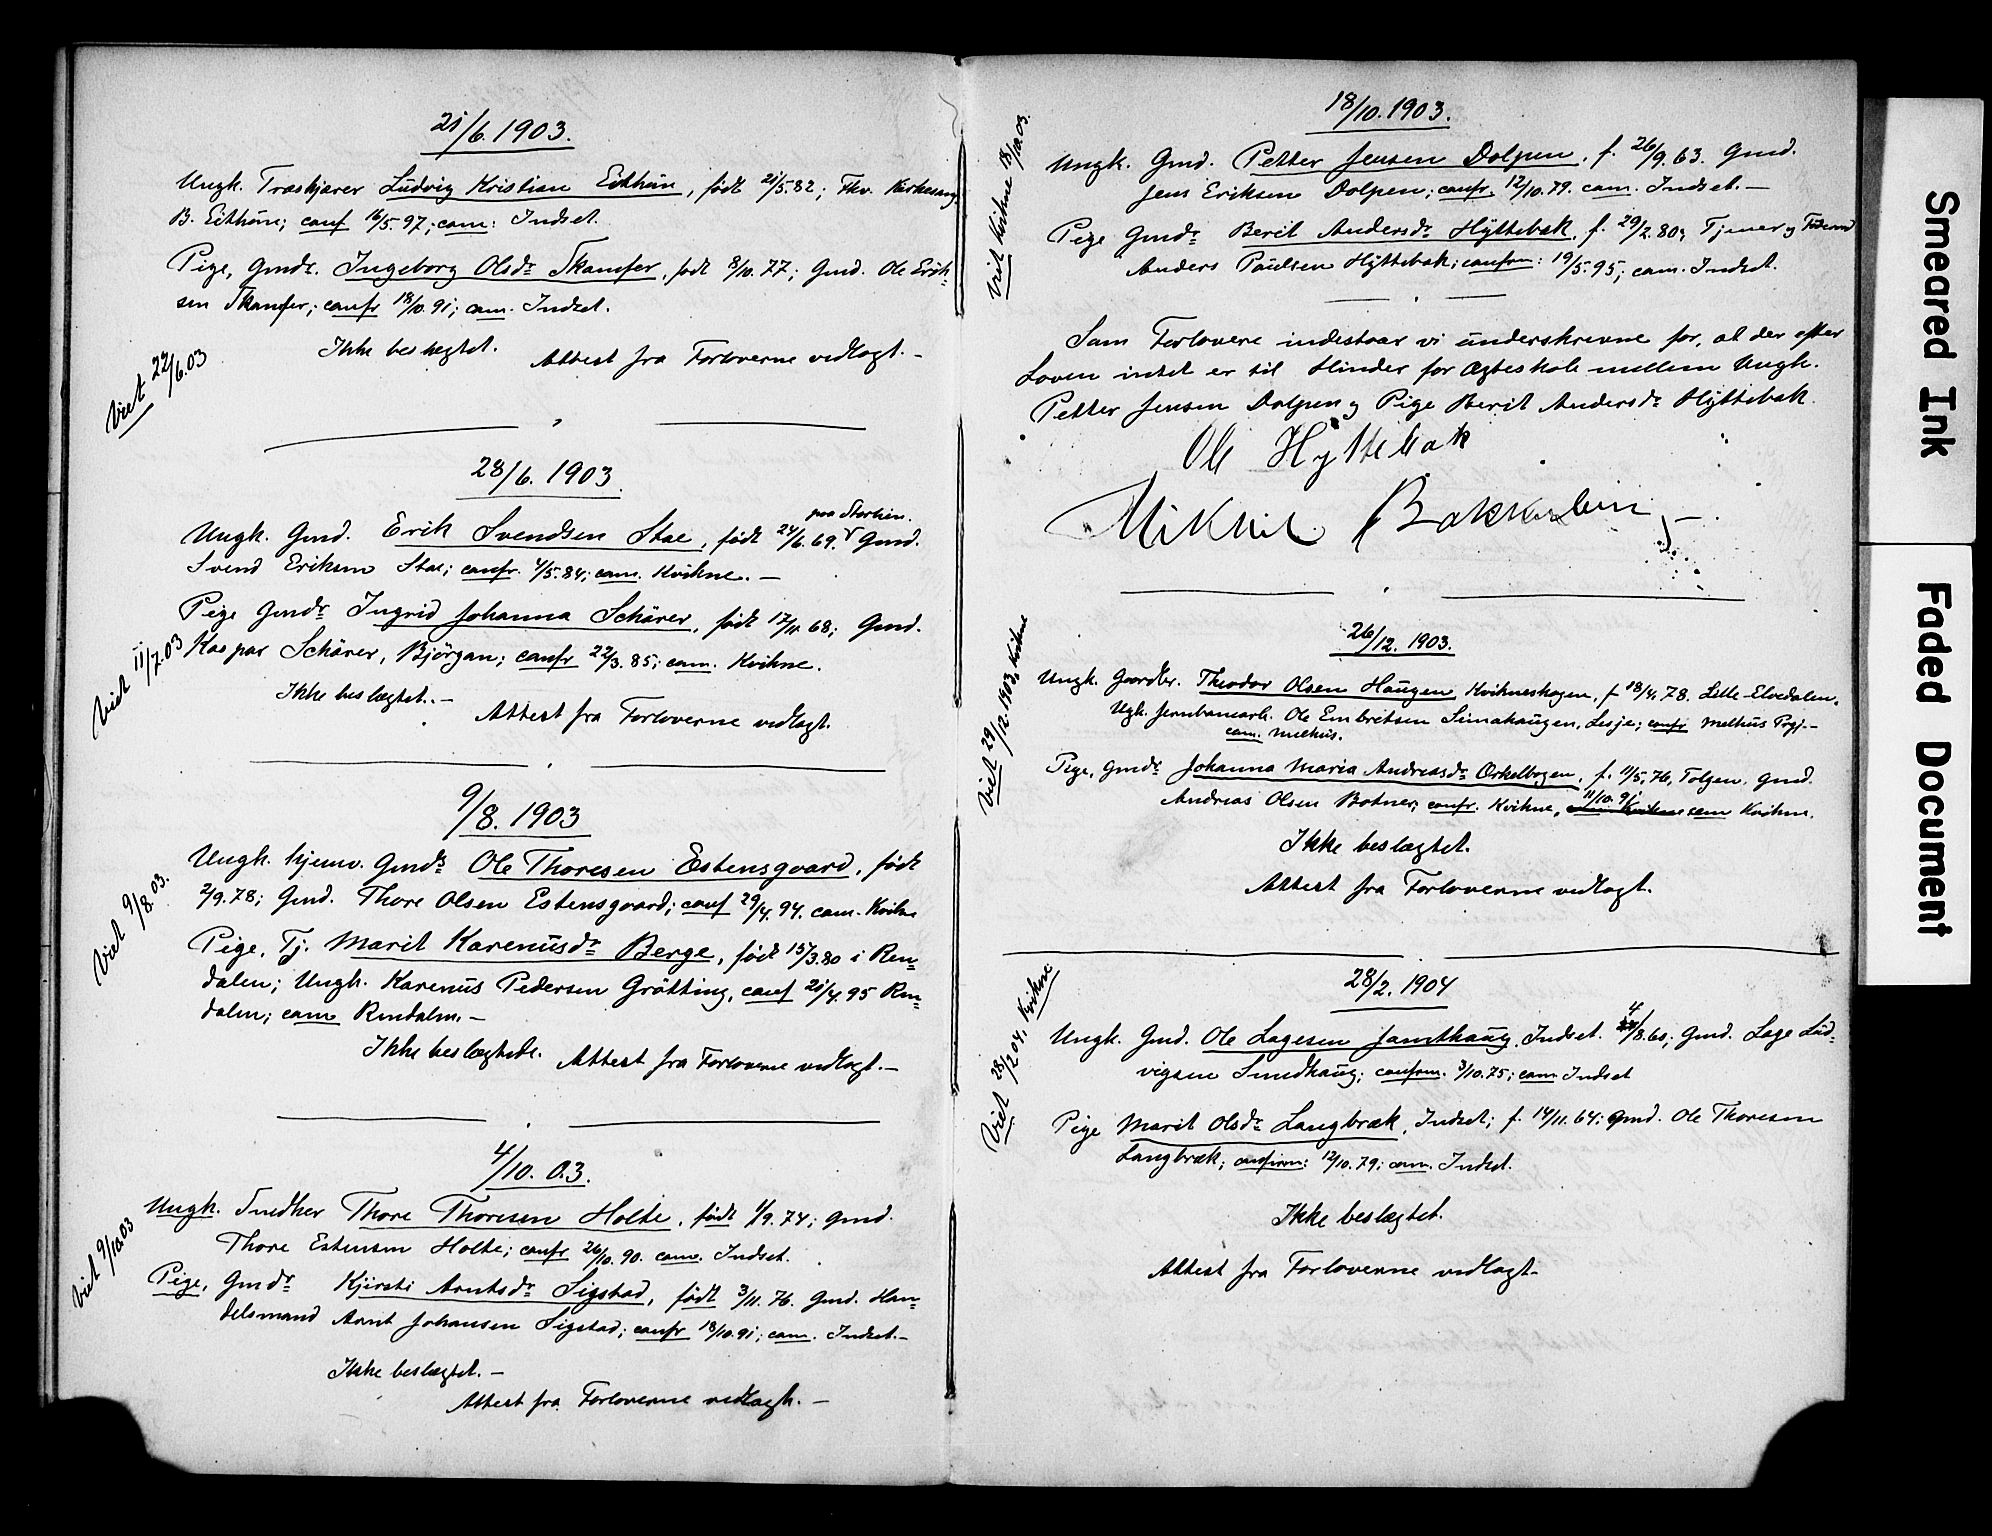 21/6. 1903.
Ungk. Træskjærer Ludvig Kristian Eithun, født 21/5.82; Fhv. Kirkesang.
B. Eithun; conf 16/5.97; com: Indset.
Pige, Gmdr. Ingeborg Olsdr Skamfer, født 8/10.77; Gmd. Ole Erik-
sen Skamfer; confr 18/10.91; com. Indset.
Ikke beslægtet.
Attest fra Forloverne vedlagt. –
Viet 22/6.03
28/6. 1903.
paa Storlien.
Ungk. Gmd. Erik Svendsen Stae, født 24/6.69. Gmd.
Svend Eriksen Stae; confr. 4/5.84; com. Kvikne. –
Pige Gmdr Ingrid Johanna Schärer, født 17/11 68; Gmd.
Kaspar Schärer, Bjørgan; confr 22/3.85; com. Kvikne.
Ikke beslægtet. –
Attest fra Forloverne vedlagt.
Viet 11/7.03
9/8. 1903
Ungk. hjemv. Gmds Ole Thoresen Estensgaard, født
2/9.78; Gmd. Thore Olsen Estensgaard; conf 29/4.94. com. Kvikne
Pige, Tj. Marit Karenusdr Berge, født 15/3.80 i Ren-
dalen; Ungk. Karenus Pedersen Grötting, conf 21/4.95 Ren-
dalen; com Rendalen. –
Ikke beslægtede.
Attest fra Forloverne vedlagt. –
Viet 9/8.03.
4/10. 03.
Ungk. Snedker Thore Thoresen Holte, født 1/9.74; Gmd.
Thore Estensen Holte; confr 26/10.90. com. Indset.
Pige, Gmdr Kjersti Arntsdr Sigstad, født 3/11.76. Gmd. Han-
delsmand Arnt Johansen Sigstad; confr 18/10.91; com. Indset. –
Ikke beslægtet. –
Attest fra Forloverne vedlagt. –
Viet 9/10.03
18/10. 1903.
Ungk. Gmd. Petter Jensen Dolpen, f. 26/9.63. Gmd.
Jens Eriksen Dolpen; confr. 12/10.79. com. Indset. –
Pige Gmdr Berit Andersdr Hÿttebak, f. 29/2.80; Tjener og
Anders Paulsen Hÿttebak; confrm: 19/5.95; com. Indset.
Som Forlovere indestaar vi underskrevne for, at der efter
Loven intet er til Hinder for Ægteskab mellem Ungk.
Petter Jensen Dolpen og Pige Berit Andersdr Hÿttebak.
Ole Hyttebak
Mikkel Bakken
Viet Kvikne 18/10.03.
26/12. 1903.
Ungk. Gaardbr. Theodor Olsen Haugen, Kvikneskogen, f 18/4.78. Lille-Elvedalen.
Ugk. Jernbanearb. Ole Embretsen Simahaugen, Lesje; confr Melhus Prgj. –
com. Melhus.
Pige, Gmdr Johanna Maria Andreasdr Orkelbogen, f. 11/5.76, Tolgen, Gmd.
Andreas Olsen Botner; confr. Kvikne, 11/10.91 com Kvikne.
Ikke beslægtet.
Attest fra Forloverne vedlagt.
Viet 29/12.1903, Kvikne
28/2. 1904
Ungk. Gmd. Ole Lagesen Jamthaug, Indset. 4/8.60; Gmd. Lage Lud-
vigsen Smedhaug; confrm. 3/10.75; com Indset
Pige Marit Olsdr Langbræk, Indset; f. 14/11.64; Gmd. Ole Thoresen
Langbræk; confirm: 12/10.79; com. Indset.
Ikke beslægtet.
Attest fra Forloverne vedlagt –
Viet 28/2 04. Kvikne
Smeared Ink
Faded Document